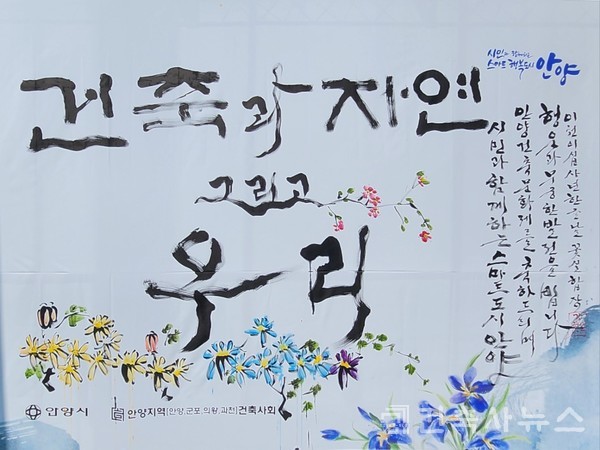 건축과 자연
그리고
우리
시민과 함께하는
스마트 행복도시 안양
이천이십사년 한글날 꽃실 함장
형용하 무궁한 발전을 빕니다
안양건축문화제를 축하드리며
시민과 함께하는 스마트도시 안양
안양시
안양지역(안양,군포,의왕,과천)건축사회
건축사뉴스